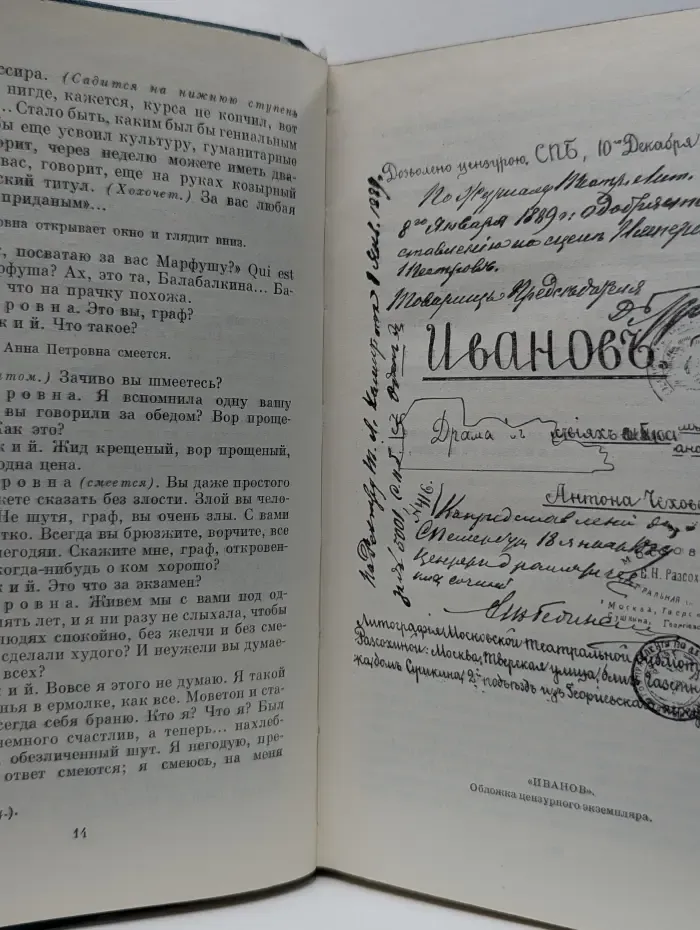 ссира. (Садится на нижнюю ступень
нигде, кажется, курса не кончил, вот
... Стало быть, каким был бы гениальным
ы еще усвоил культуру, гуманитарные
орит, через неделю можете иметь два-
вас, говорит, еще на руках козырный
ский титул. (Хохочет.) За вас любая
приданым»...
овна открывает окно и глядит вниз.
, посватаю за вас Марфушу?» Qui est
рфуша? Ах, это та, Балабалкина... Ба-
что на прачку похожа.
ровна. Это вы, граф?
кий. Что такое?
Анна Петровна смеется.
том.) Зачиво вы шмеетесь?
ровна. Я вспомнила одну вашу
вы говорили за обедом? Вор проще-
Как это?
кий. Жид крещеный, вор прощеный,
одна цена.
ровна (смеется). Вы даже простого
жете сказать без злости. Злой вы чело-
Не шутя, граф, вы очень злы. С вами
тко. Всегда вы брюзжите, ворчите, все
негодяи. Скажите мне, граф, откровен-
когда-нибудь о ком хорошо?
кий. Это что за экзамен?
ровна. Живем мы с вами под од-
пять лет, и я ни разу не слыхала, чтобы
людях спокойно, без желчи и без сме-
сделали худого? И неужели вы думае-
всех?
кий. Вовсе я этого не думаю. Я такой
нья в ермолке, как все. Моветон и ста-
сегда себя браню. Кто я? Что я? Был
немного счастлив, а теперь... нахлеб-
обезличенный шут. Я негодую, пре-
ответ смеются; я смеюсь, на меня
14
Дозволено цензурою. СПБ, 10го Декабря
По Журналу Театр. Лит.
8го Января 1889 г. одобряет
ставлению на сцен Импера
Театровъ.
Товарищъ Предсѣдателя
Ивановъ
Драма
Антона Чехов
№416.
Къ представленiю
С.Петербургъ, 18 января
Цензоръ драматич
сочиненiй
Литография Московской Театральной библiот
Разсохиной: Москва, Тверская улица,
домъ Сушкина, 2й подъездъ изъ Георгiевскаго
«ИВАНОВ».
Обложка цензурного экземпляра.